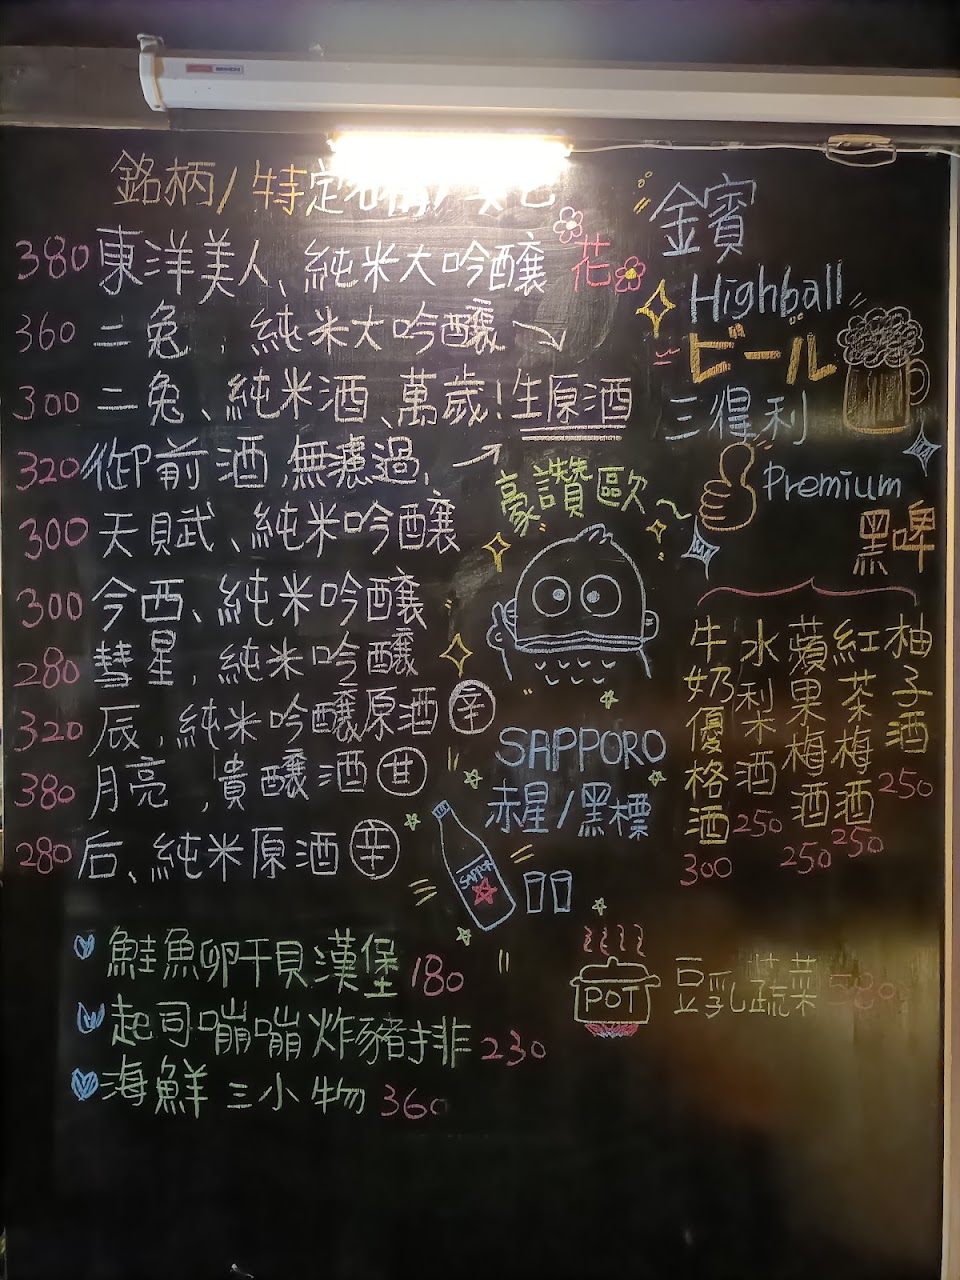 銘柄/特定名稱/
380 東洋美人、純米大吟釀 花
360 二兔，純米大吟釀
300 二兔、純米酒、萬歲!生原酒
320 御前酒，無濾過，
300 天賦、純米吟釀
300 今西、純米吟釀
280 彗星，純米吟釀
320 辰，純米吟釀原酒 辛
380 月亮，貴釀酒 甘
280 后、純米原酒 辛
鮭魚卵干貝漢堡 180
起司嘣嘣炸豬排 230
海鮮三小物 360
金賓
Highball
ビール
三得利
Premium
黑啤
豪讚歐~
SAPPORO
赤星/黑標
SAPPOR
牛奶優格酒 300
水梨酒 250
蘋果梅酒 250
紅茶梅酒 250
柚子酒 250
POT 豆乳蔬菜 580